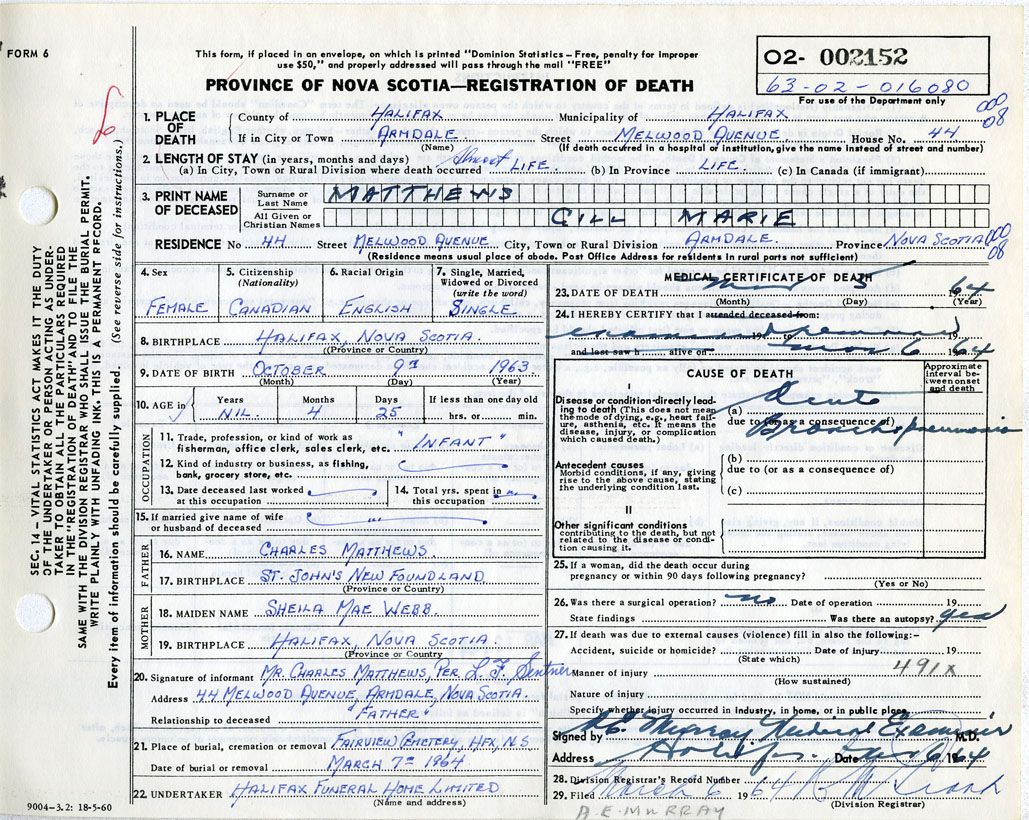 FORM 6
This form, if placed in an envelope, on which is printed "Dominion Statistics – Free, penalty for improper
use $50," and properly addressed will pass through the mail "FREE"
PROVINCE OF NOVA SCOTIA—REGISTRATION OF DEATH
O2- 002152
63-02-016080
For use of the Department only
1. PLACE OF DEATH { County of HALIFAX Municipality of HALIFAX 000 08
If in City or Town ARMDALE Street MELWOOD AVENUE House No. 44
(Name) (If death occurred in a hospital or institution, give the name instead of street and number)
2. LENGTH OF STAY (in years, months and days) Almost
(a) In City, Town or Rural Division where death occurred LIFE. (b) In Province LIFE. (c) In Canada (if immigrant)
3. PRINT NAME OF DECEASED { Surname or Last Name MATTHEWS
All Given or Christian Names GILL MARIE
RESIDENCE No 44 Street MELWOOD AVENUE City, Town or Rural Division ARMDALE. Province NOVA SCOTIA 000 08
(Residence means usual place of abode. Post Office Address for residents in rural parts not sufficient)
4. Sex FEMALE
5. Citizenship (Nationality) CANADIAN
6. Racial Origin ENGLISH
7. Single, Married, Widowed or Divorced (write the word) SINGLE.
8. BIRTHPLACE HALIFAX, NOVA SCOTIA.
(Province or Country)
9. DATE OF BIRTH OCTOBER 9TH 1963
(Month) (Day) (Year)
10. AGE in { Years NIL. Months 4 Days 25 If less than one day old hrs. or min.
OCCUPATION
11. Trade, profession, or kind of work as
fisherman, office clerk, sales clerk, etc. "INFANT"
12. Kind of industry or business, as fishing,
bank, grocery store, etc.
13. Date deceased last worked at this occupation
14. Total yrs. spent in this occupation
15. If married give name of wife
or husband of deceased
FATHER
16. NAME CHARLES MATTHEWS.
17. BIRTHPLACE ST. JOHN'S NEW FOUNDLAND
(Province or Country)
MOTHER
18. MAIDEN NAME SHEILA MAE WEBB.
19. BIRTHPLACE HALIFAX, NOVA SCOTIA.
(Province or Country
20. Signature of informant MR. CHARLES MATTHEWS, PER. L. F. Sentner
Address 44 MELWOOD AVENUE, ARMDALE, NOVA SCOTIA.
Relationship to deceased "FATHER"
21. Place of burial, cremation or removal FAIRVIEW CEMETERY, HFX, N.S
Date of burial or removal MARCH 7TH 1964
22. UNDERTAKER HALIFAX FUNERAL HOME LIMITED
(Name and address)
9004-3.2: 18-5-60
MEDICAL CERTIFICATE OF DEATH
23. DATE OF DEATH Mar 5 1964
(Month) (Day) (Year)
24. I HEREBY CERTIFY that I attended deceased from:
19 19
and last saw h alive on Mar 6 1964
CAUSE OF DEATH
Approximate interval between onset and death
I
Disease or condition directly leading to death (This does not mean the mode of dying, e.g., heart failure, asthenia, etc. It means the disease, injury, or complication which caused death.)
(a) Acute
due to (or as a consequence of) Bronchopneumonia
Antecedent causes
Morbid conditions, if any, giving rise to the above cause, stating the underlying condition last.
(b)
due to (or as a consequence of)
(c)
II
Other significant conditions contributing to the death, but not related to the disease or condition causing it.
25. If a woman, did the death occur during
pregnancy or within 90 days following pregnancy?
(Yes or No)
26. Was there a surgical operation? no Date of operation 19
State findings Was there an autopsy? yes
27. If death was due to external causes (violence) fill in also the following:-
Accident, suicide or homicide? Date of injury 19
(State which)
Manner of injury 491X
(How sustained)
Nature of injury
Specify whether injury occurred in industry, in home, or in public place
Signed by A E Murray Medical Examiner M.D.
Address Halifax Date Mar 6 1964
28. Division Registrar's Record Number
29. Filed March 6 1964
(Division Registrar)
A.E. MURRAY
SEC. 14 – VITAL STATISTICS ACT MAKES IT THE DUTY
OF THE UNDERTAKER OR PERSON ACTING AS UNDER-
TAKER TO OBTAIN ALL THE PARTICULARS REQUIRED
IN THE "REGISTRATION OF DEATH" AND TO FILE THE
SAME WITH THE DIVISION REGISTRAR WHO SHALL ISSUE THE BURIAL PERMIT.
WRITE PLAINLY WITH UNFADING INK. THIS IS A PERMANENT RECORD.
Every item of information should be carefully supplied. (See reverse side for instructions.)